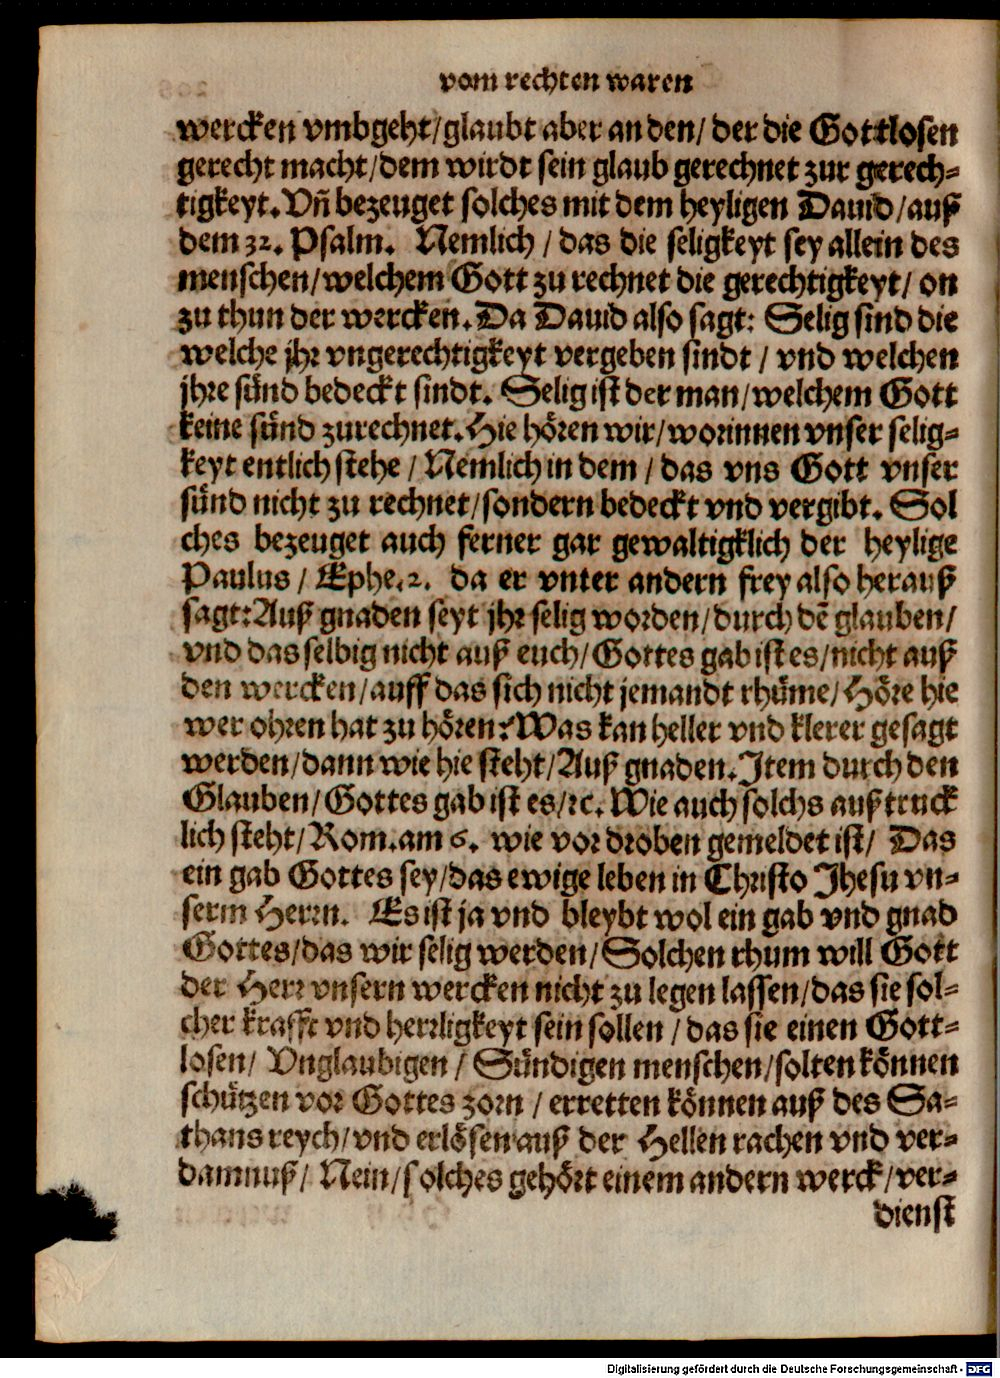 vom rechten waren
wercken vmbgeht/glaubt aber an den/ der die Gottlosen
gerecht macht/dem wirdt sein glaub gerechnet zur gerech-
tigkeyt. Vñ bezeuget solches mit dem heyligen Dauid/auß
dem 32. Psalm. Nemlich / das die seligkeyt sey allein des
menschen/welchem Gott zu rechnet die gerechtigkeyt/ on
zu thun der wercken. Da Dauid also sagt: Selig sind die
welche jhr vngerechtigkeyt vergeben sindt / vnd welchen
jhre sünd bedeckt sindt. Selig ist der man/welchem Gott
keine sünd zurechnet. Hie hören wir/worinnen vnser selig-
keyt entlich stehe / Nemlich in dem / das vns Gott vnser
sünd nicht zu rechnet/sondern bedeckt vnd vergibt. Sol
ches bezeuget auch ferner gar gewaltigklich der heylige
Paulus / Ephe. 2. da er vnter andern frey also herauß
sagt: Auß gnaden seyt jhr selig worden/durch dē glauben/
vnd das selbig nicht auß euch/Gottes gab ist es/nicht auß
den wercken/auff das sich nicht jemandt rhüme/Höre hie
wer ohren hat zu hören? Was kan heller vnd klerer gesagt
werden/dann wie hie steht/Auß gnaden. Item durch den
Glauben/Gottes gab ist es/ꝛc. Wie auch solchs außtruck
lich steht/Rom. am 6. wie vor droben gemeldet ist/ Das
ein gab Gottes sey/das ewige leben in Christo Jhesu vn-
serm Herrn. Es ist ja vnd bleybt wol ein gab vnd gnad
Gottes/das wir selig werden/Solchen rhum will Gott
der Herr vnsern wercken nicht zu legen lassen/das sie sol-
cher krafft vnd herrligkeyt sein sollen / das sie einen Gott-
losen/ Vnglaubigen / Sündigen menschen/solten können
schützen vor Gottes zorn / erretten können auß des Sa-
thans reych/vnd erlösen auß der Hellen rachen vnd ver-
damnuß/ Nein/solches gehört einem andern werck/ver-
dienst
Digitalisierung gefördert durch die Deutsche Forschungsgemeinschaft - DFG